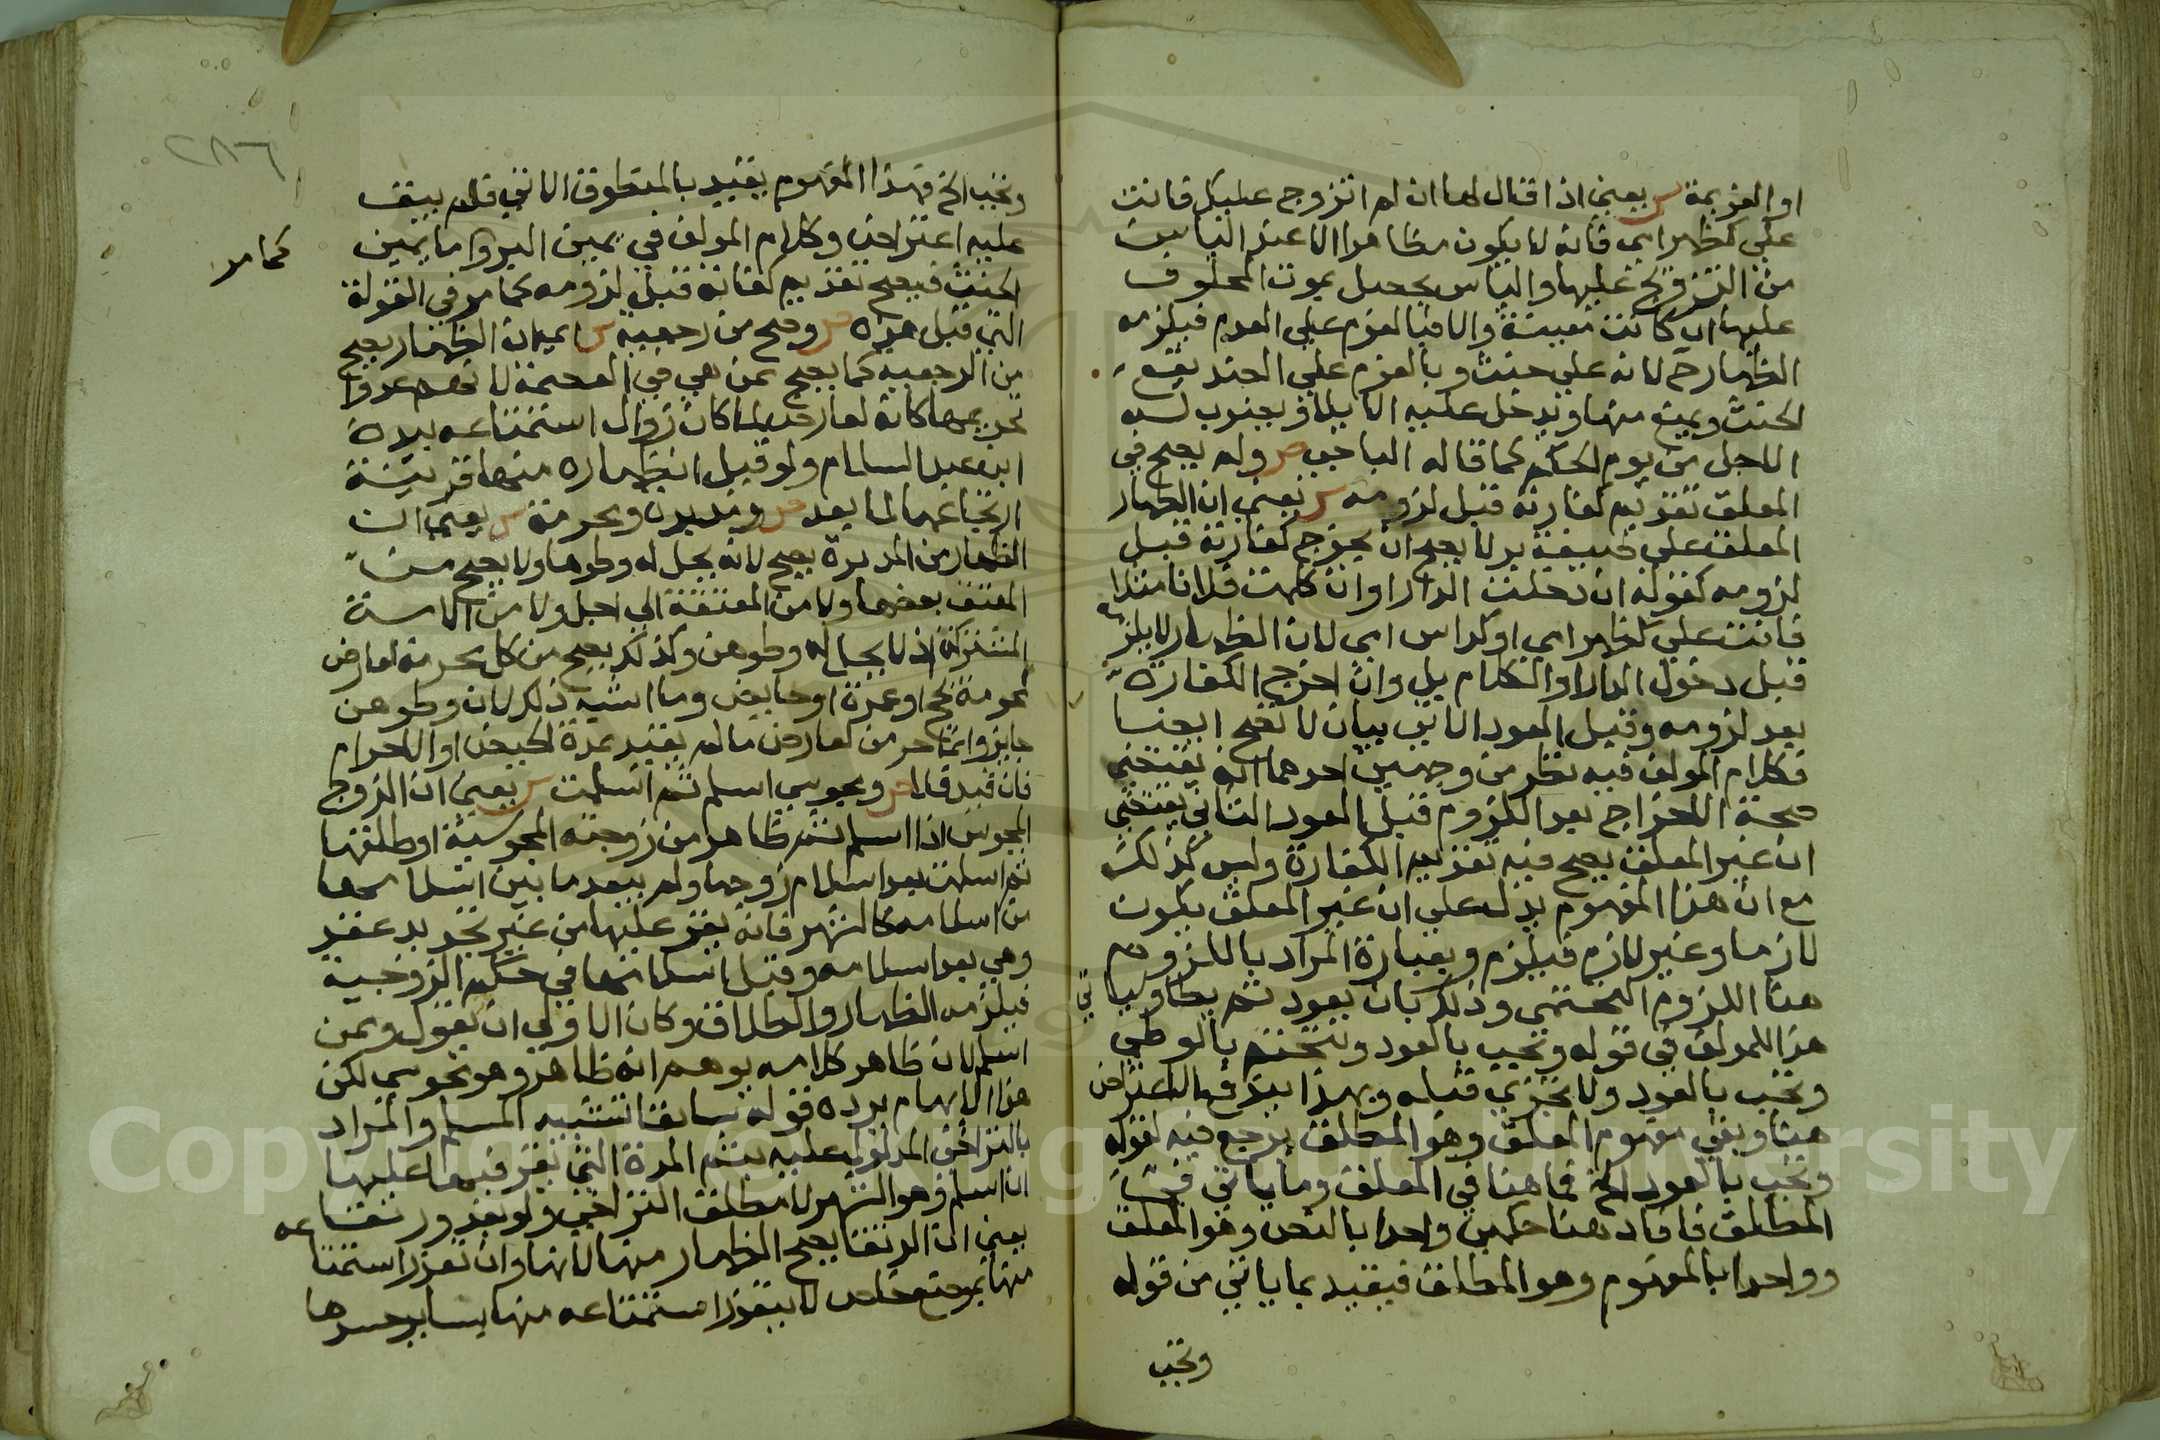 او العزيمة ش يعني اذا قال لها ان لم اتزوج عليك فانت
علي كظهر امي فانه لا يكون مظاهرا الا عند الياس
من التزوج عليها والياس يحصل بموت المحلوف
عليها ان كانت معينة والا فبالعزم علي العدم فيلزمه
الظهار ح لانه علي حنث وبالعزم علي الضد يقع
الحنث ويمنع منها ويدخل عليه الايلا ويضرب له
الاجل من يوم الحكم كما قاله الباجي ص ولم يصح في
المعلق تقديم كفارته قبل لزومه ش يعني ان الظهار
المعلق علي صيغة بر لا يصح ان يخرج كفارته قبل
لزومه كقوله ان دخلت الدار او ان كلمت فلانا مثلا
فانت علي كظهر امي او كراس امي لان الظهار لا يلزمه
قبل دخول الدار او الكلام بل وان اخرج الكفارة
بعد لزومه وقبل العود الاتي بيان لا تصح ايضا
فكلام المولف فيه نظر من وجهين احدهما انه يقتضي
صحة الاخراج بعد اللزوم قبل العود الثاني يقتضي
ان غير المعلق يصح فيه تقديم الكفارة وليس كذلك
مع ان هذا المفهوم يدل علي ان غير المعلق يكون
لازما وغير لازم فيلزم وبعبارة المراد باللزوم
هنا اللزوم التحتمي وذلك بان يعود ثم يطا وياتي
هذا للمولف في قوله وتجب بالعود وتتحتم بالوطي
وتجب بالعود ولا تجزي قبله وبهذا يندفع الاعتراض
هنا وبقي مفهوم المعلق وهو المطلق يرجع فيه لقوله
وتجب بالعود الخ فما هنا في المعلق وما ياتي في
المطلق فافاد هنا حكمين واحدا بالنص وهو المعلق
وواحدا بالمفهوم وهو المطلق فيقيد بما ياتي من قوله
وتجب
٢٨٦
وتجب الخ فهذا المفهوم يقيد بالمنطوق الاتي فلم يبق
عليه اعتراض وكلام المولف في يمين البر واما يمين
الحنث فيصح تقديم كفارته قبل لزومه كما مر في القولة
كما مر
التي قبل هذه ص وصح من رجعية ش اي ان الظهار يصح
من الرجعية كما يصح ممن هي في العصمة لانهم عدوا
تحريمها كانه لعارض لما كان زوال استمتاعه بيده
ابن عبد السلام ولو قيل ان ظهاره منها قرينة
ارتجاعها لما بعد ص ومدبرة ومحرمة ش يعني ان
الظهار من المدبرة يصح لانه يحل له وطوها ولا يصح من
المعتق بعضها ولا من المعتقة الي اجل ولا من الامة
المشتركة اذ لا يحل له وطوهن وكذلك يصح من كل محرمة لعارض
كمحرمة بحج او عمرة او حايض وما اشبه ذلك لان وطوهن
جايز وانما حرمن لعارض ما لم يقيد بمدة الحيض او الاحرام
فان قيد فلا ص ومجوسي اسلم ثم اسلمت ش يعني ان الزوج
المجوسي اذا اسلم ثم ظاهر من زوجته المجوسية او طلقها
ثم اسلمت بعد اسلام زوجها ولم يبعد ما بين اسلامها
من اسلامه كالشهر فانه يقر عليها من غير تجديد عقد
وهي بعد اسلامه وقبل اسلامها في حكم الزوجية
فيلزمه الظهار والطلاق وكان الاولي ان يقول وممن
اسلم لان ظاهر كلامه يوهم انه ظاهر وهو مجوسي لكن
هذا الايهام يرده قوله سابقا تشبيه المسلم والمراد
بالتراخي المدلول عليه بثم المدة التي يقر فيها عليها
ان اسلم وهو الشهر لا مطلق التراخي ولو بعد ص ورتقا ش
يعني ان الرتقا يصح الظهار منها لانها وان تعذر استمتاعه
منها بموضع خاص لا يتعذر استمتاعه منها بساير جسدها